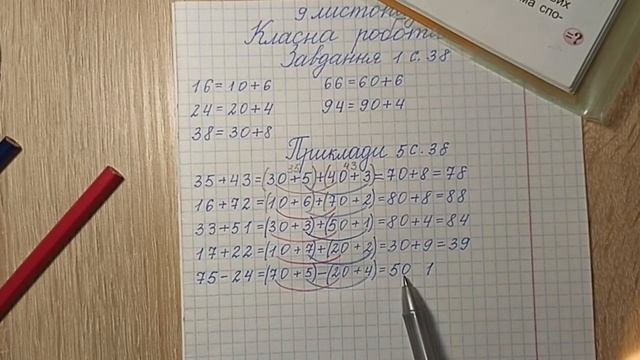 9 листопада
их
ма спо-
=?
Класна робота
Завдання 1 с. 38
16=10+6 66=60+6
24=20+4 94=90+4
38=30+8
Приклади 5 с. 38
35 43
35+43=(30+5)+(40+3)=70+8=78
16+72=(10+6)+(70+2)=80+8=88
33+51=(30+3)+(50+1)=80+4=84
17+22=(10+7)+(20+2)=30+9=39
75-24=(70+5)-(20+4)=50 1